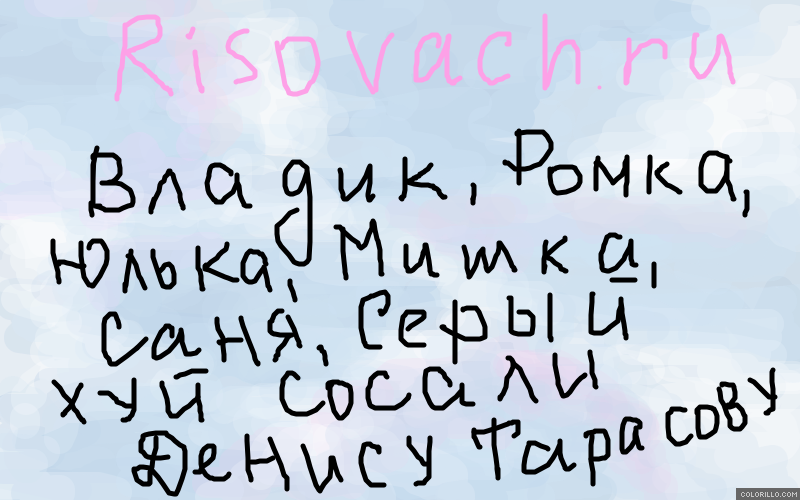 Risovach.ru
Владик, Ромка,
Юлька, Мишка,
Саня, Серый
хуй сосали
Денису Тарасову
COLORILLO.COM